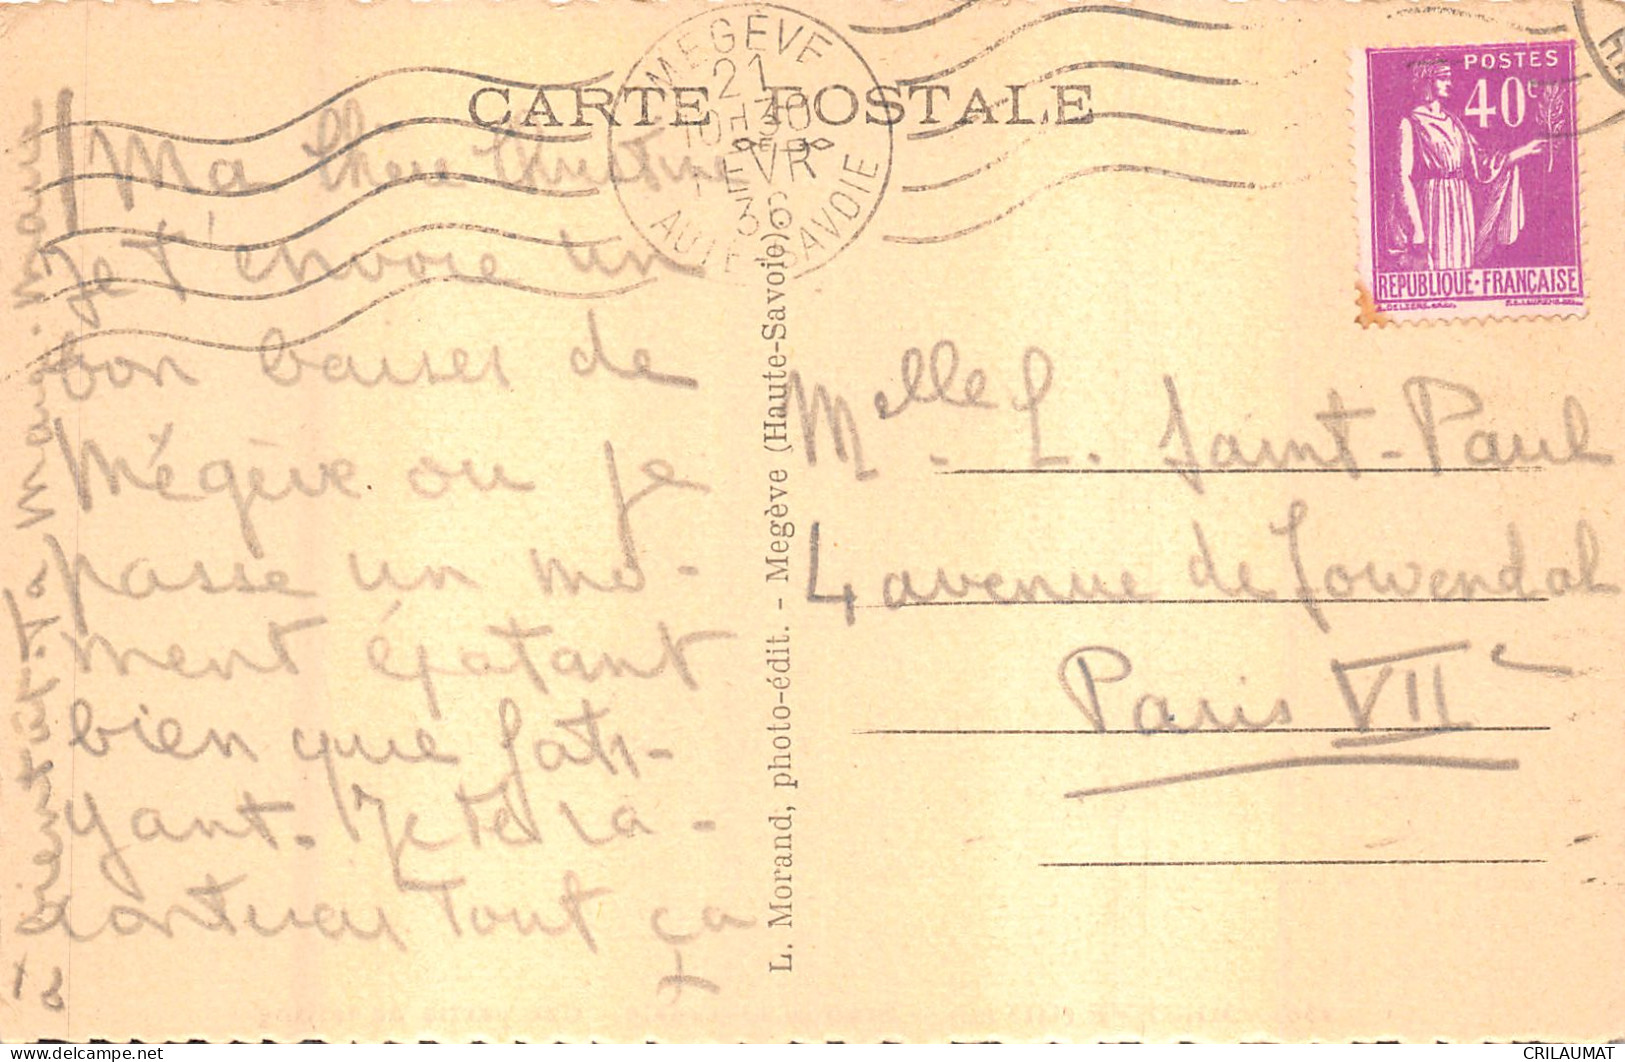 CARTE POSTALE
MEGÈVE
21
10H30
FEVR
36
HAUTE SAVOIE
POSTES
40c
REPUBLIQUE·FRANÇAISE
Ma chère Christine
Je t'envoie un
bon baiser de
Mégève ou je
passe un mo-
ment épatant
bien que fati-
gant. Je te ra-
conterai tout ça
à
bientôt. Ta
L. Morand, photo-édit. - Megève (Haute-Savoie)
Melle L. Saint-Paul
4 avenue de Lowendal
Paris VIIe
CRILAUMAT